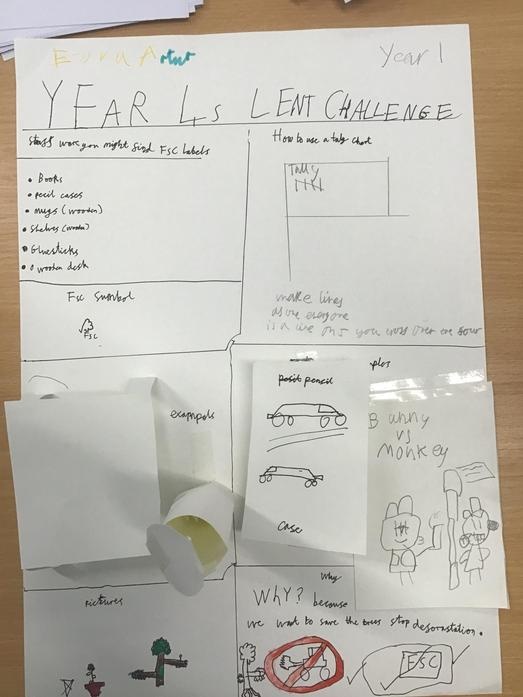 Year 1
YEAR 4s LENT CHALLENGE
stuff were you might find FSC LABELS
• Books
• pecil cases
• mugs (wooden)
• shelves (wooden)
• Gluesticks
• wooden desk
FSC Symbol
FSC
How to use a taly chart
Tally
make lines
is a line on 5 you cross over the four
exampels
ples
pencil
case
Bunny
vs
Monkey
Pictures
Why
WHY? because
we want to save the trees stop deforastation.
FSC